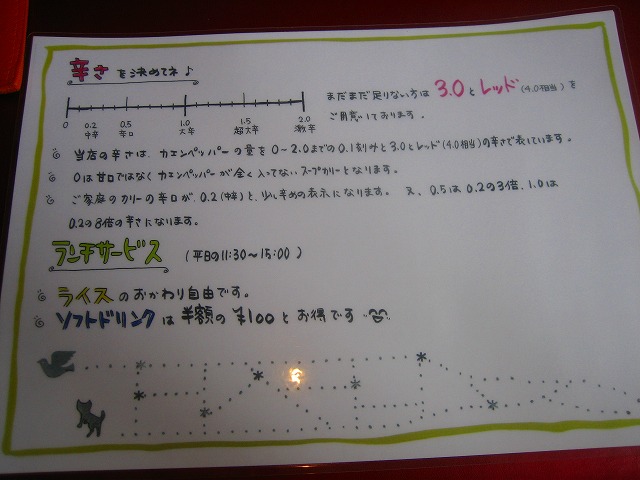 辛さを決めてネ♪
まだまだ足りない方は 3.0とレッド(4.0相当)を
ご用意いております。
0 0.2 0.5 1.0 1.5 2.0
中辛 辛口 大辛 超大辛 激辛
当店の辛さは、カエンペッパーの量を0~2.0までの0.1刻みと3.0とレッド(4.0相当)の辛さで表しています。
0は甘口ではなくカエンペッパーが全く入ってないスープカリーとなります。
ご家庭のカリーの辛口が、0.2(中辛)と、少し辛めの表示になります。 又、0.5は0.2の3倍、1.0は
0.2の8倍の辛さになります。
ランチサービス (平日の11:30~15:00)
ライスのおかわり自由です。
ソフトドリンクは半額の¥100とお得です